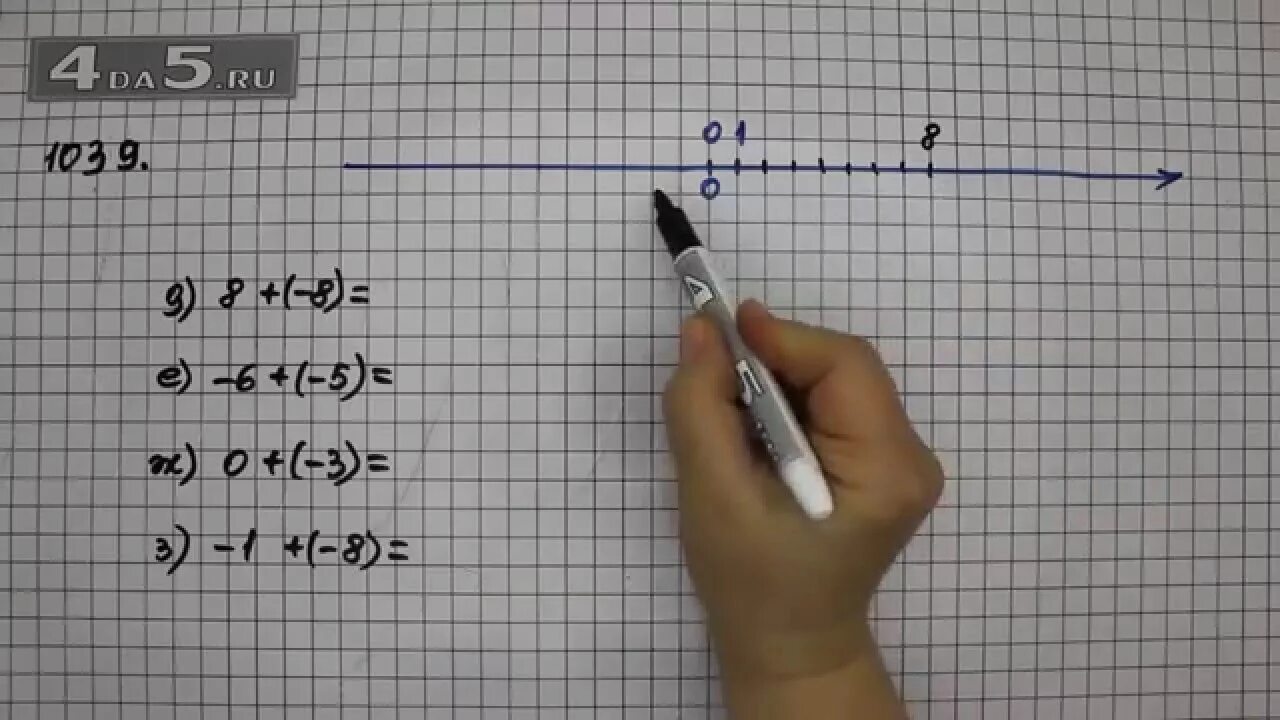 4DA5.RU
0 1 8
1039.
0
д) 8 +(-8)=
е) -6 +(-5)=
ж) 0 +(-3)=
з) -1 +(-8)=